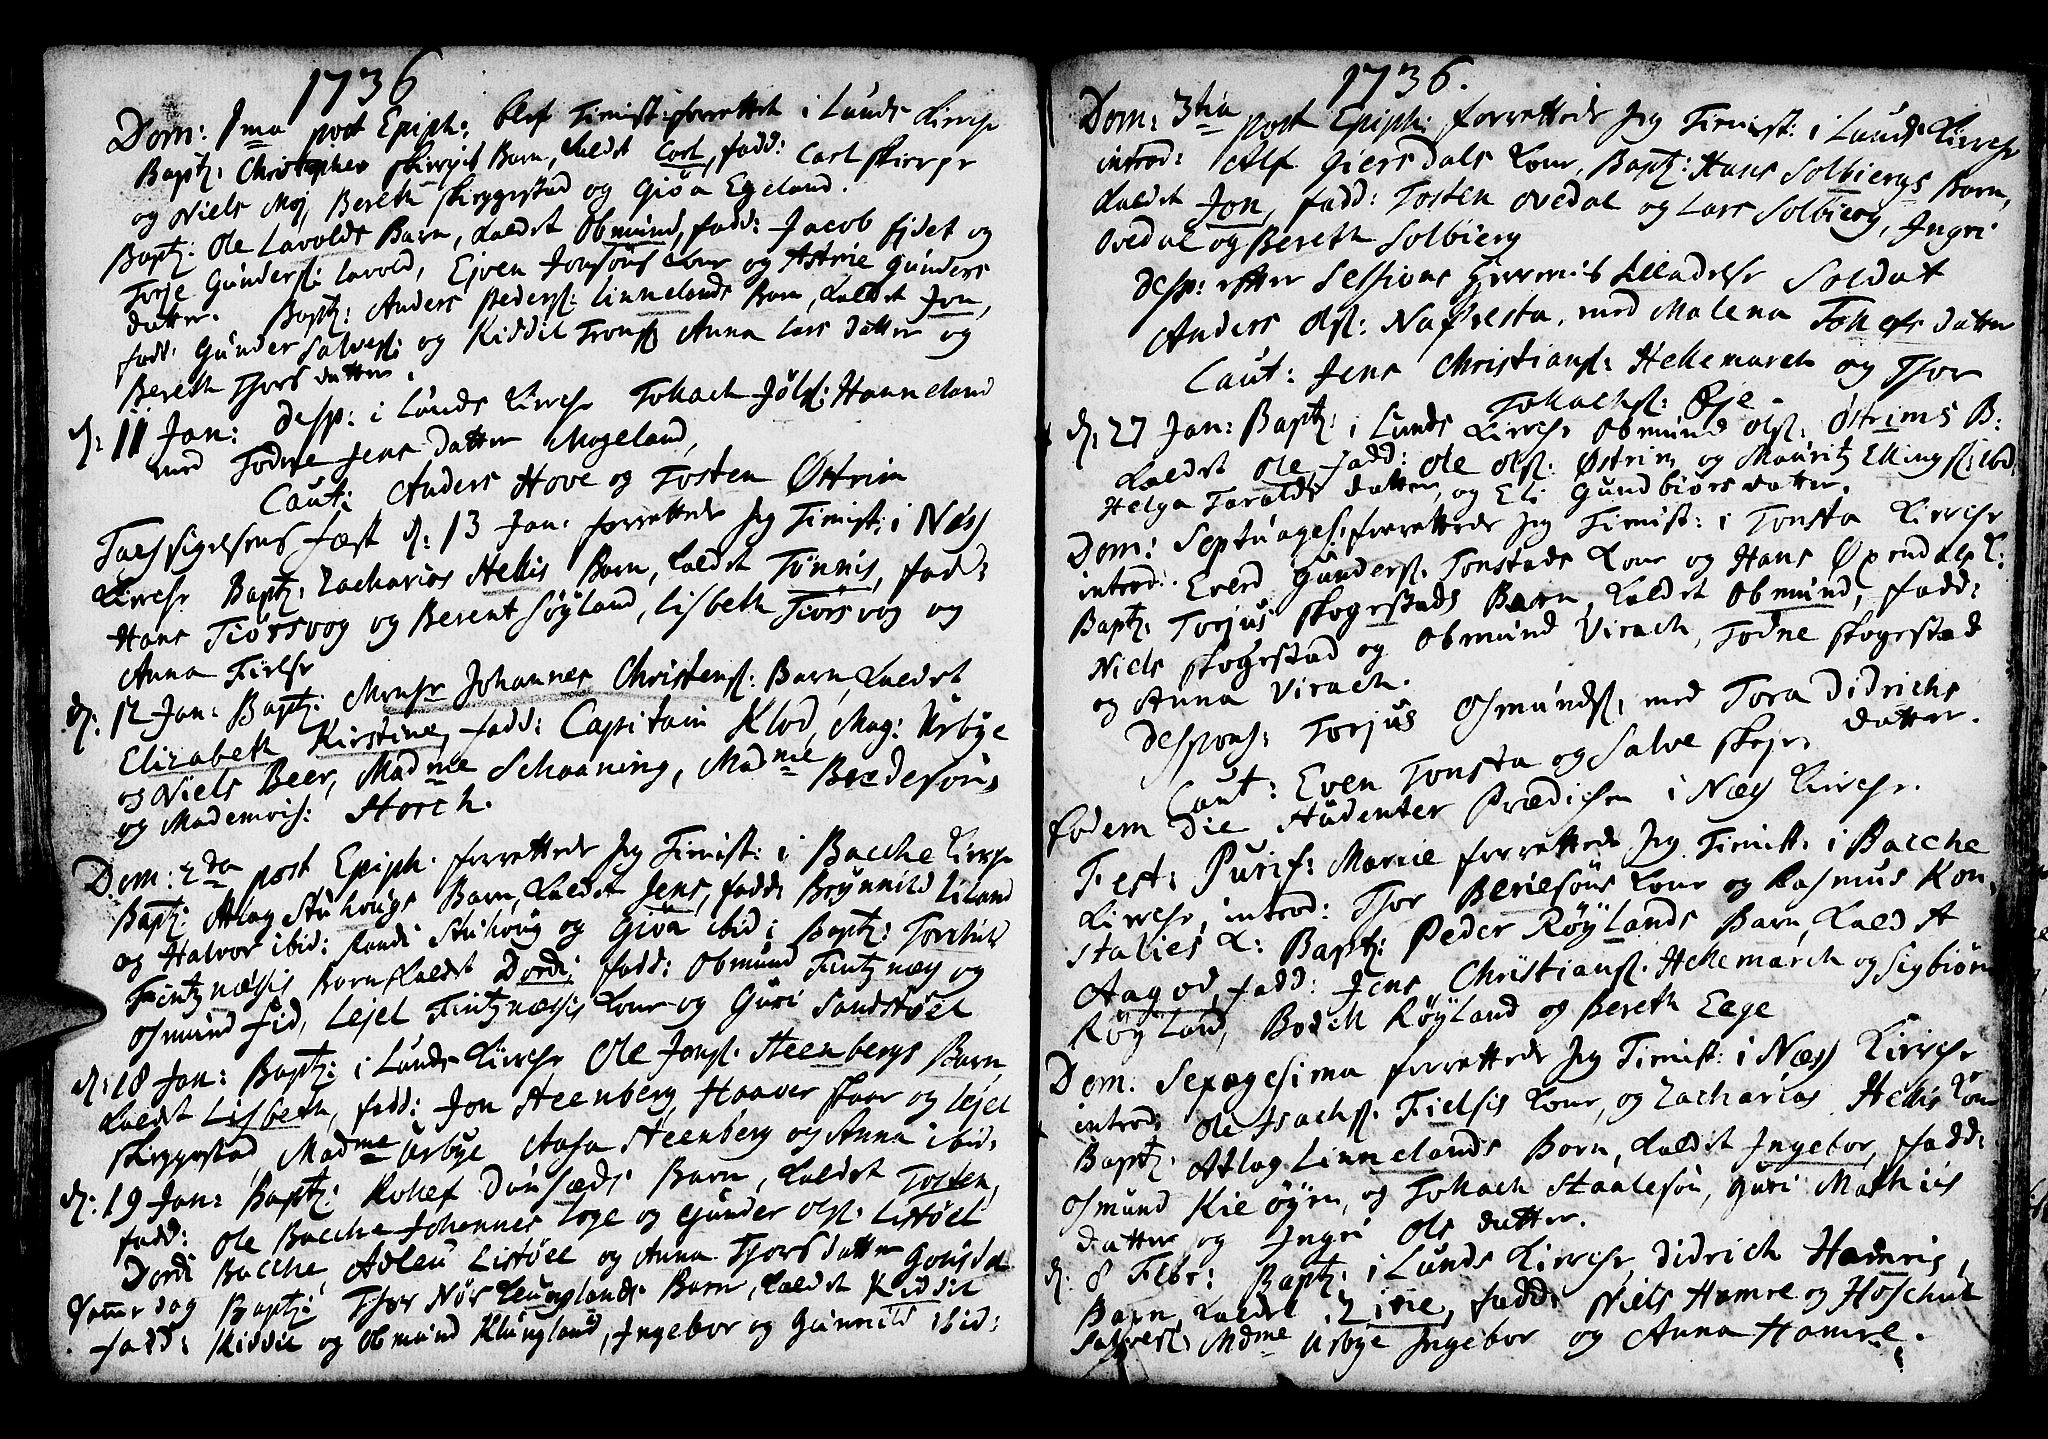 1736
Dom: 1ma post Epiph: blef Tienist: forrettet i Lunds Kirche
Baptz: Christopher Skiryis Barn, kaldet Carl, fadd: Carl Skierpe
og Niels Moj, Bereth Skiyggestad og Giöa Egeland.
Baptz: Ole Lavolds Barn, kaldet Obmund, fadd: Jacob fjdet og
Torje Gunders: lavold, Ejven Jonsöns Kone og Astrie Gunders
datter. Baptz: Anders Peders: Linnelands Barn, kaldet Jon,
fadd: Gunder Salves: og Kiddil Trons: Anna Lars datter og
Bereth Thors datter.
d: 11 Jan: desp: i Lunds Kirche Tollach Jöls: Hanneland
med Todne Jens datter Mogeland,
Caut: Anders Hove og Tosten Østrim
Tacksigelsens fæst d: 13 Jan: forrettede Jeg Tienist: i Næss
Kirche Baptz: Zacharias Hellis Barn, kaldet Tönnis, fadd:
Hans Tiörsvog og Berent Söyland, Lisbeth Tiörsvog og
Anna Fielse
d: 12 Jan: Baptz: Monsr Johannes Christens: Barn, kaldet
Elizabeth Kirstine, fadd: Capitain Klod, Mag: Urbye
og Niels Beer, Madme Schaaning, Madme Bredesöns
og Mademois: Storch.
Dom: 2da post Epiph: forrettede Jeg Tienist: i Bacche Kirche
Baptz: Atlag Stuhougs Barn, kaldet Jens, fadd: Brynnild Liland
og Halvor ibid: Randi Stuhoug og Giöa ibid: Baptz: Torchild
Fintznæsis Barn kaldet Dordi, fadd: Obmund Fintznæs og
Osmund fid, Lejel Fintznæsis Kone og Guri Sandstöel
d: 18 Jan: Baptz: i Lunds Kirche Ole Jons: Steenbergs Barn,
kaldet Lisbeth, fadd: Jon Steenberg, Haaver Skaar og Lejel
Skiyggestad, Madme Urbye Aasa Steenberg og Anna ibid:
d: 19 Jan: Baptz: Rollef Dunsæds Barn, kaldet Tosten,
fadd: Ole Bacche Johannes Loge og Gunder Ols: Listöel
Dordi Bacche, Adleu Listöel og Anna Thors datter
Samme dag Baptz: Thor Nör Klunglands Barn, kaldet Kiddil
fadd: Kiddil og Obmund Klungland, Ingebor og Gunnild ibid:
1736.
Dom: 3tia post Epiph: forrettede Jeg Tienist: i Lunds Kirche
introd: Alf Giersdals Kone, Baptz: Hans Solbiergs Barn,
kaldet Jon, fadd: Tosten Ovedal og Lars Solbierg, Ingri
Ovedal og Bereth Solbierg
desp: efter Sessions Herrernis tilladelse Soldat
Anders Ols: Nafresta, med Malena Tollefs datter
Caut: Jens Christians: Hellemarch og Thor
Tollachs: Øje
d: 27 Jan: Baptz: i Lunds Kirche Obmund Ols: Østrims B:
kaldet Ole, fadd: Ole Ols: Østrim og Mauritz Ellings: ibid:
Helga Taralds datter, og Eli Gundbiörs datter.
Dom: Septuages: forrettede Jeg Tienist: i Tonsta Kirche
introd: Everd Gunders: Tonstads Kone og Hans Øxendals K:
Baptz: Torjus Skogestads Barn, kaldet Obmund, fadd:
Niels Skogestad og Obmund Virach, Todne Skogestad
og Anna Virach.
despons: Torjus Osmunds: med Tora Didrichs
datter.
Caut: Even Tonsta og Salve
Eodem Die Studenter Prædichen i Næss Kirche.
Fest: Purif: Mariæ forrettede Jeg Tienist: i Bacche
Kirche, introd: Thor Beriesöns Kone og Rasmus Kon-
stalies K: Baptz: Peder Röylands Barn, kaldet
Aagod, fadd: Jens Christians: Hellemarch og Sigbiörn
Röyland, Bodil Röyland og Bereth Eege
Dom: Sexagesima forrettede Jeg Tienist: i Næss Kirche
introd: Ole Isachs: Fielsis Kone, og Zacharias Hellis Kone
Baptz: Atlag Linnelands Barn, kaldet Ingebor, fadd:
Osmund Kieöyen, og Tollach Staalesön, Guri Mathias
datter og Ingri Ols datter.
d: 8 Febr: Baptz: i Lunds Kirche, Didrich Hamris,
Barn, kaldet Zirie, fadd: Niels Hamre og Höschul
Salves: Mdme Urbye Ingebor og Anna Hamre.